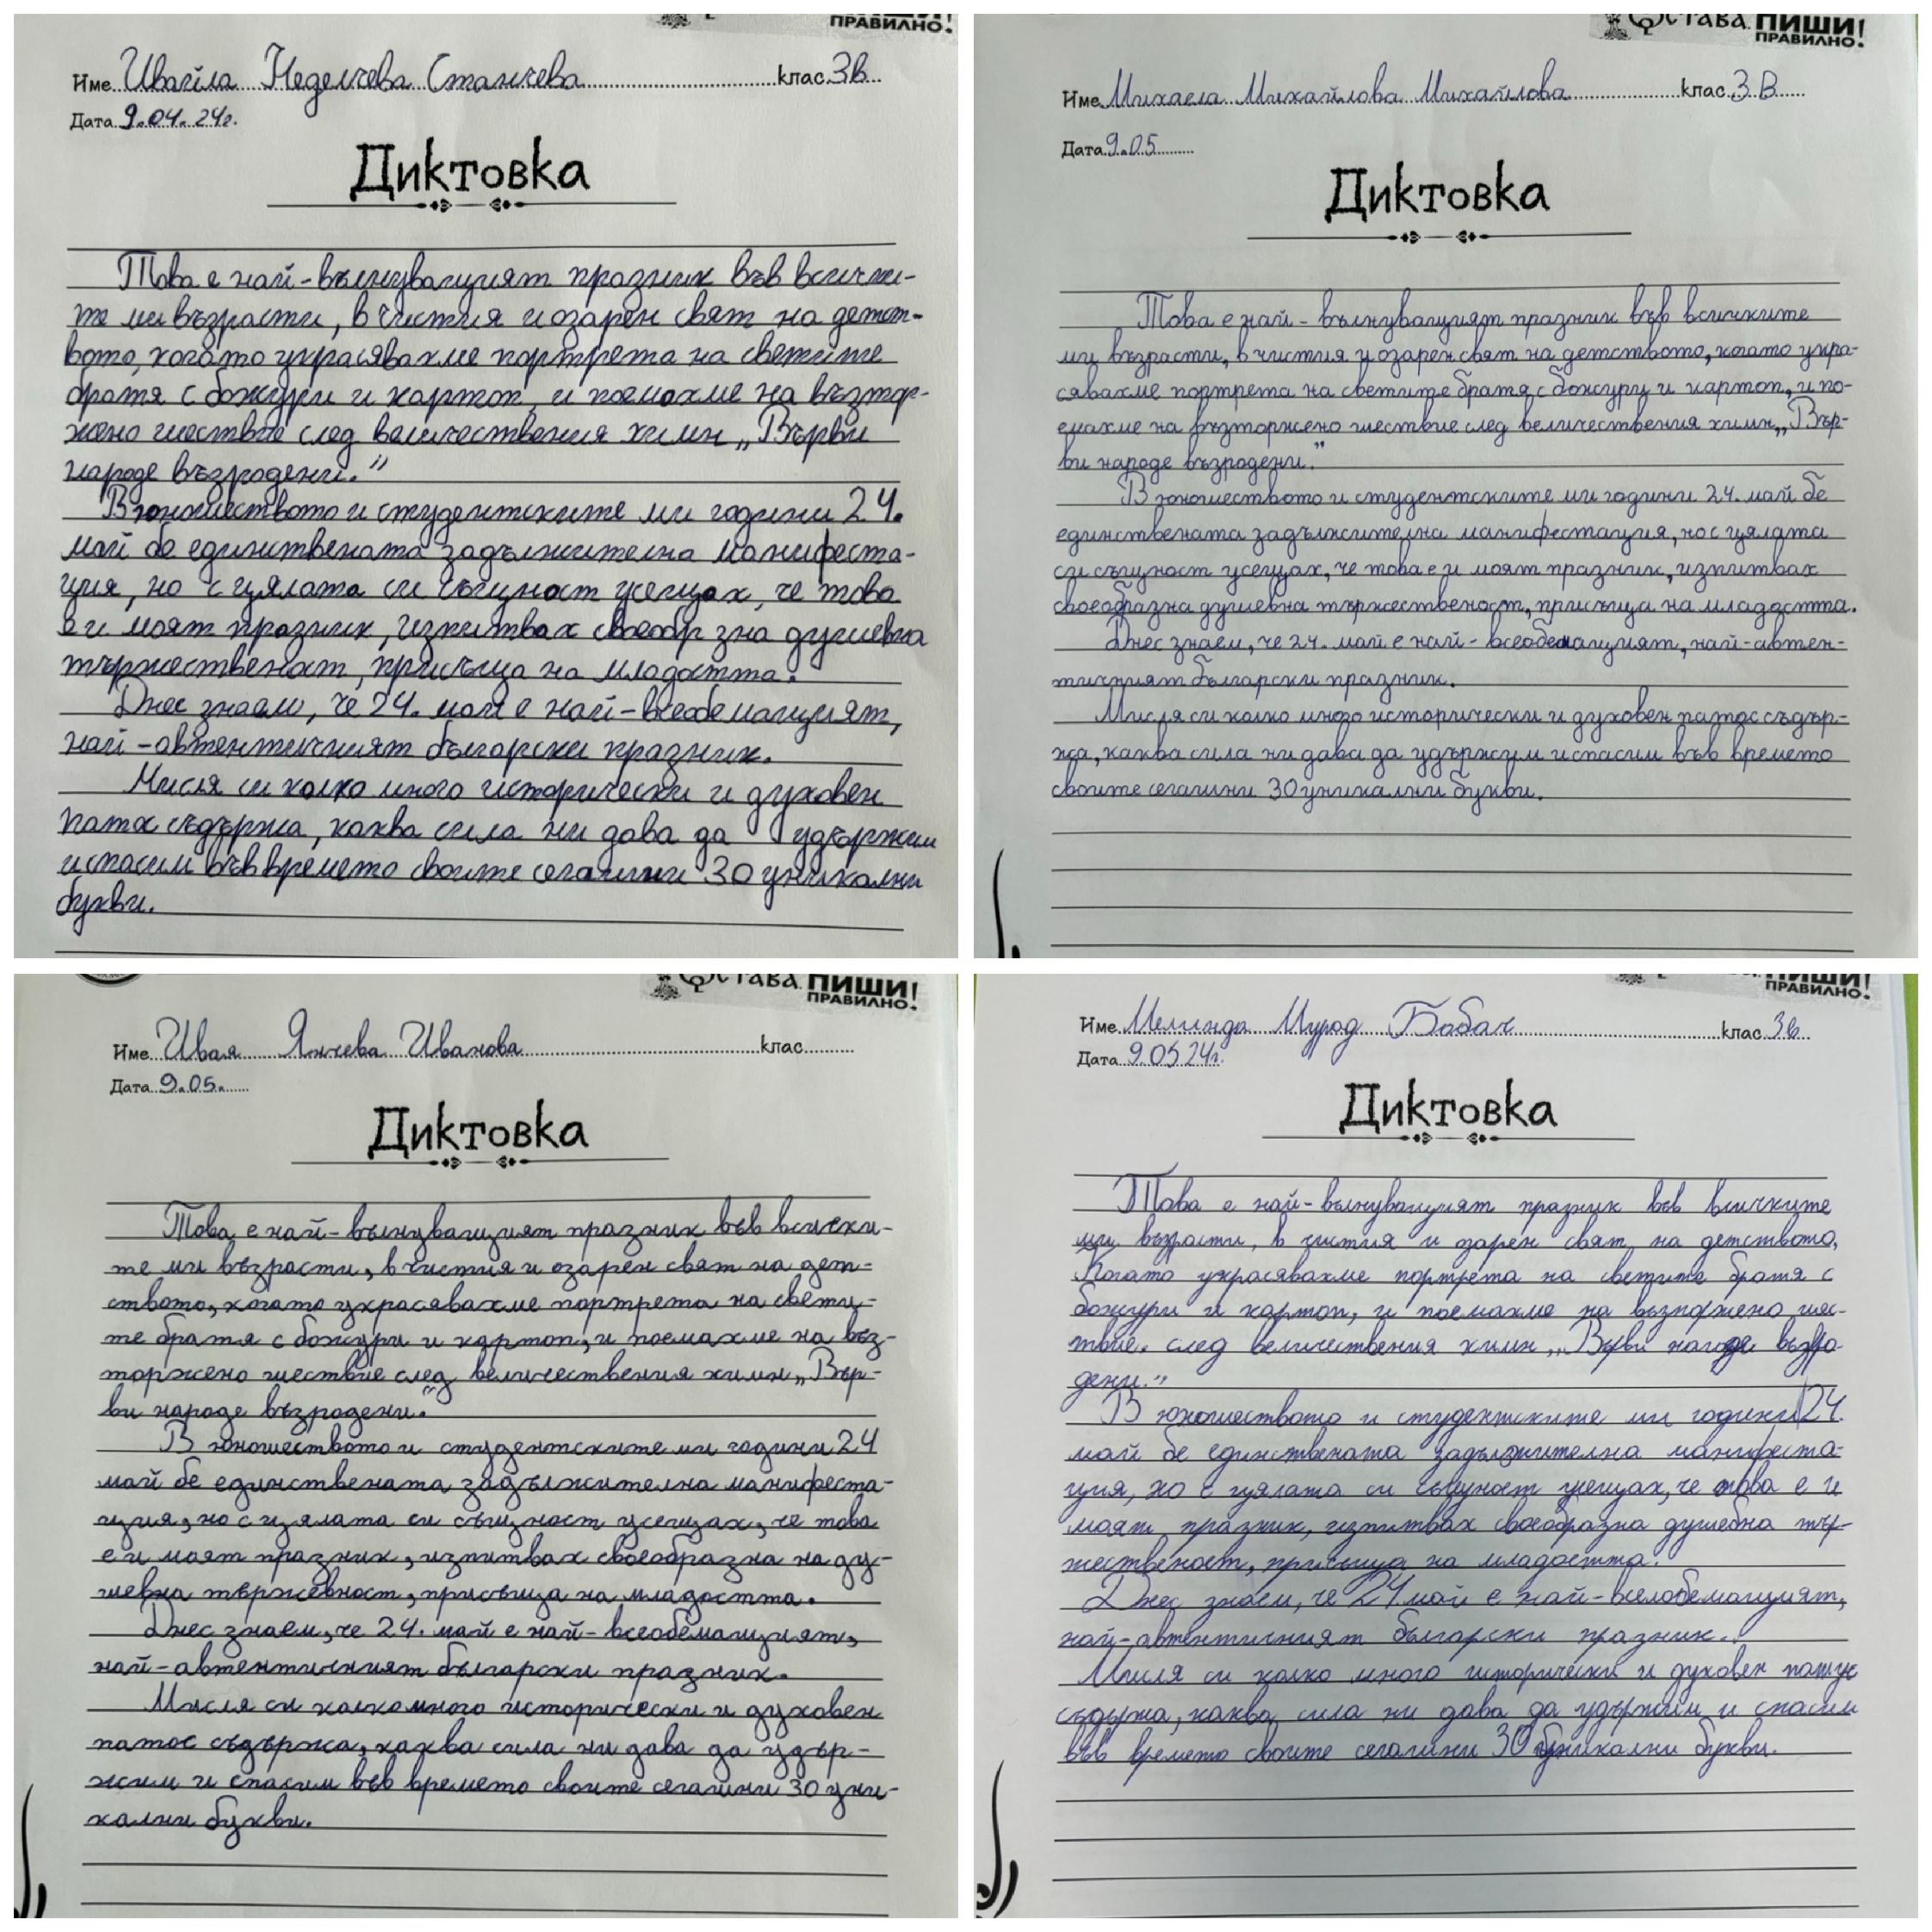 ПРАВИЛНО!
Име Ивайла Неделчева Станчева клас 3в
Дата 9.04.24г.
Диктовка
Това е най-вълнуващият празник във всички-
те ми възрасти, в чистия и озарен свят на детст-
вото, когато украсявахме портрета на светите
братя с божури и картон, и поемахме на възтор-
жено шествие след величествения химн „Върви
народе възродени.”
В юношеството и студентските ми години 24.
май бе единствената задължителна манифеста-
ция, но с цялата си същност усещах, че това
е и моят празник, изпитвах своеобр зна душевна
тържественост, присъща на младостта.
Днес знаем, че 24. май е най-всеобемащият,
най-автентичният български празник.
Мисля си колко много исторически и духовен
патос съдържа, каква сила ни дава да удържим
и спасим във времето своите сегашни 30 уникални
букви.
Остава. ПИШИ!
ПРАВИЛНО!
Име Михаела Михайлова Михайлова клас 3 В
Дата 9.05
Диктовка
Това е най-вълнуващият празник във всичките
ми възрасти, в чистия и озарен свят на детството, когато укра-
сявахме портрета на светите братя с божури и картон, и по-
емахме на възторжено шествие след величествения химн „Вър-
ви народе възродени.”
В юношеството и студентските ми години 24. май бе
единствената задължителна манифестация, но с цялата
си същност усещах, че това е и моят празник, изпитвах
своеобразна душевна тържественост, присъща на младостта.
Днес знаем, че 24. май е най-всеобемащият, най-автен-
тичният български празник.
Мисля си колко много исторически и духовен патос съдър-
жа, каква сила ни дава да удържим и спасим във времето
своите сегашни 30 уникални букви.
Остава. ПИШИ!
ПРАВИЛНО!
Име Ивая Янчева Иванова клас
Дата 9.05.
Диктовка
Това е най-вълнуващият празник във всички-
те ми възрасти, в чистия и озарен свят на дет-
ството, когато украсявахме портрета на свети-
те братя с божури и картон, и поемахме на въз-
торжено шествие след величествения химн „Вър-
ви народе възродени.”
В юношеството и студентските ми години 24
май бе единствената задължителна манифеста-
ция, но с цялата си същност усещах, че това
е и моят празник, изпитвах своеобразна на ду-
шевна тържевност, присъща на младостта.
Днес знаем, че 24. май е най-всеобемащият,
най-автентичният български празник.
Мисля си колко много исторически и духовен
патос съдържа, каква сила ни дава да удър-
жим и спасим във времето своите сегашни 30 уни-
кални букви.
ПИШИ!
ПРАВИЛНО!
Име Мелинда Мурад Бабач клас 3в
Дата 9.05 24г.
Диктовка
Това е най-вълнуващият празник във всичките
ми възрасти, в чистия и озарен свят на детството,
Когато украсявахме портрета на светите братя с
божури и картон, и поемахме на възпоржено шес-
твие. след величествения химн „Върви възро-
дени.”
В юношеството и студентските ми години 24.
май бе единствената задължителна манифеста-
ция, но с цялата си същност усещах, че това е и
моят празник, изпитвах своеобразна душевна тър-
жественост, присъща на младостта.
Днес знаем, че 24 май е най-
най-автентичният български празник.
Мисля си колко много исторически и духовен
съдържа, каква сила ни дава да удържим и спасим
във времето своите сегашни 30 уникални букви.